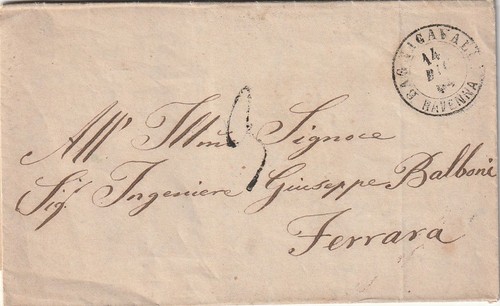 BAGNACAVALLO
14
DIC
RAVENNA
3
All' Illmo Signore
Sig. Ingeniere Giuseppe Balboni
Ferrara